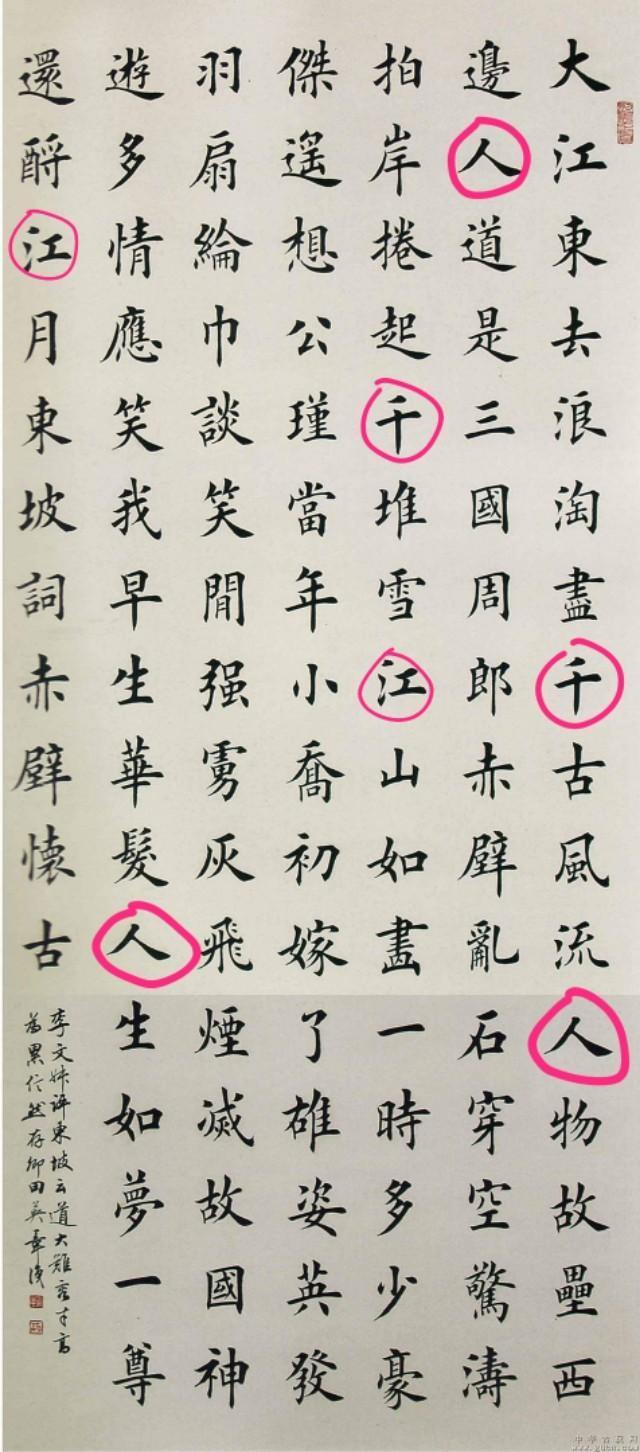 大江東去浪淘盡千古風流人物故壘西
邊人道是三國周郎赤壁亂石穿空驚濤
拍岸捲起千堆雪江山如畫一時多少豪
傑遙想公瑾當年小喬初嫁了雄姿英發
羽扇綸巾談笑間强虜灰飛煙滅故國神
遊多情應笑我早生華髮人生如夢一尊
還酹江月東坡詞赤壁懷古
東坡云道大難容才高
為累信然存卿田英章識
www.gucn.com